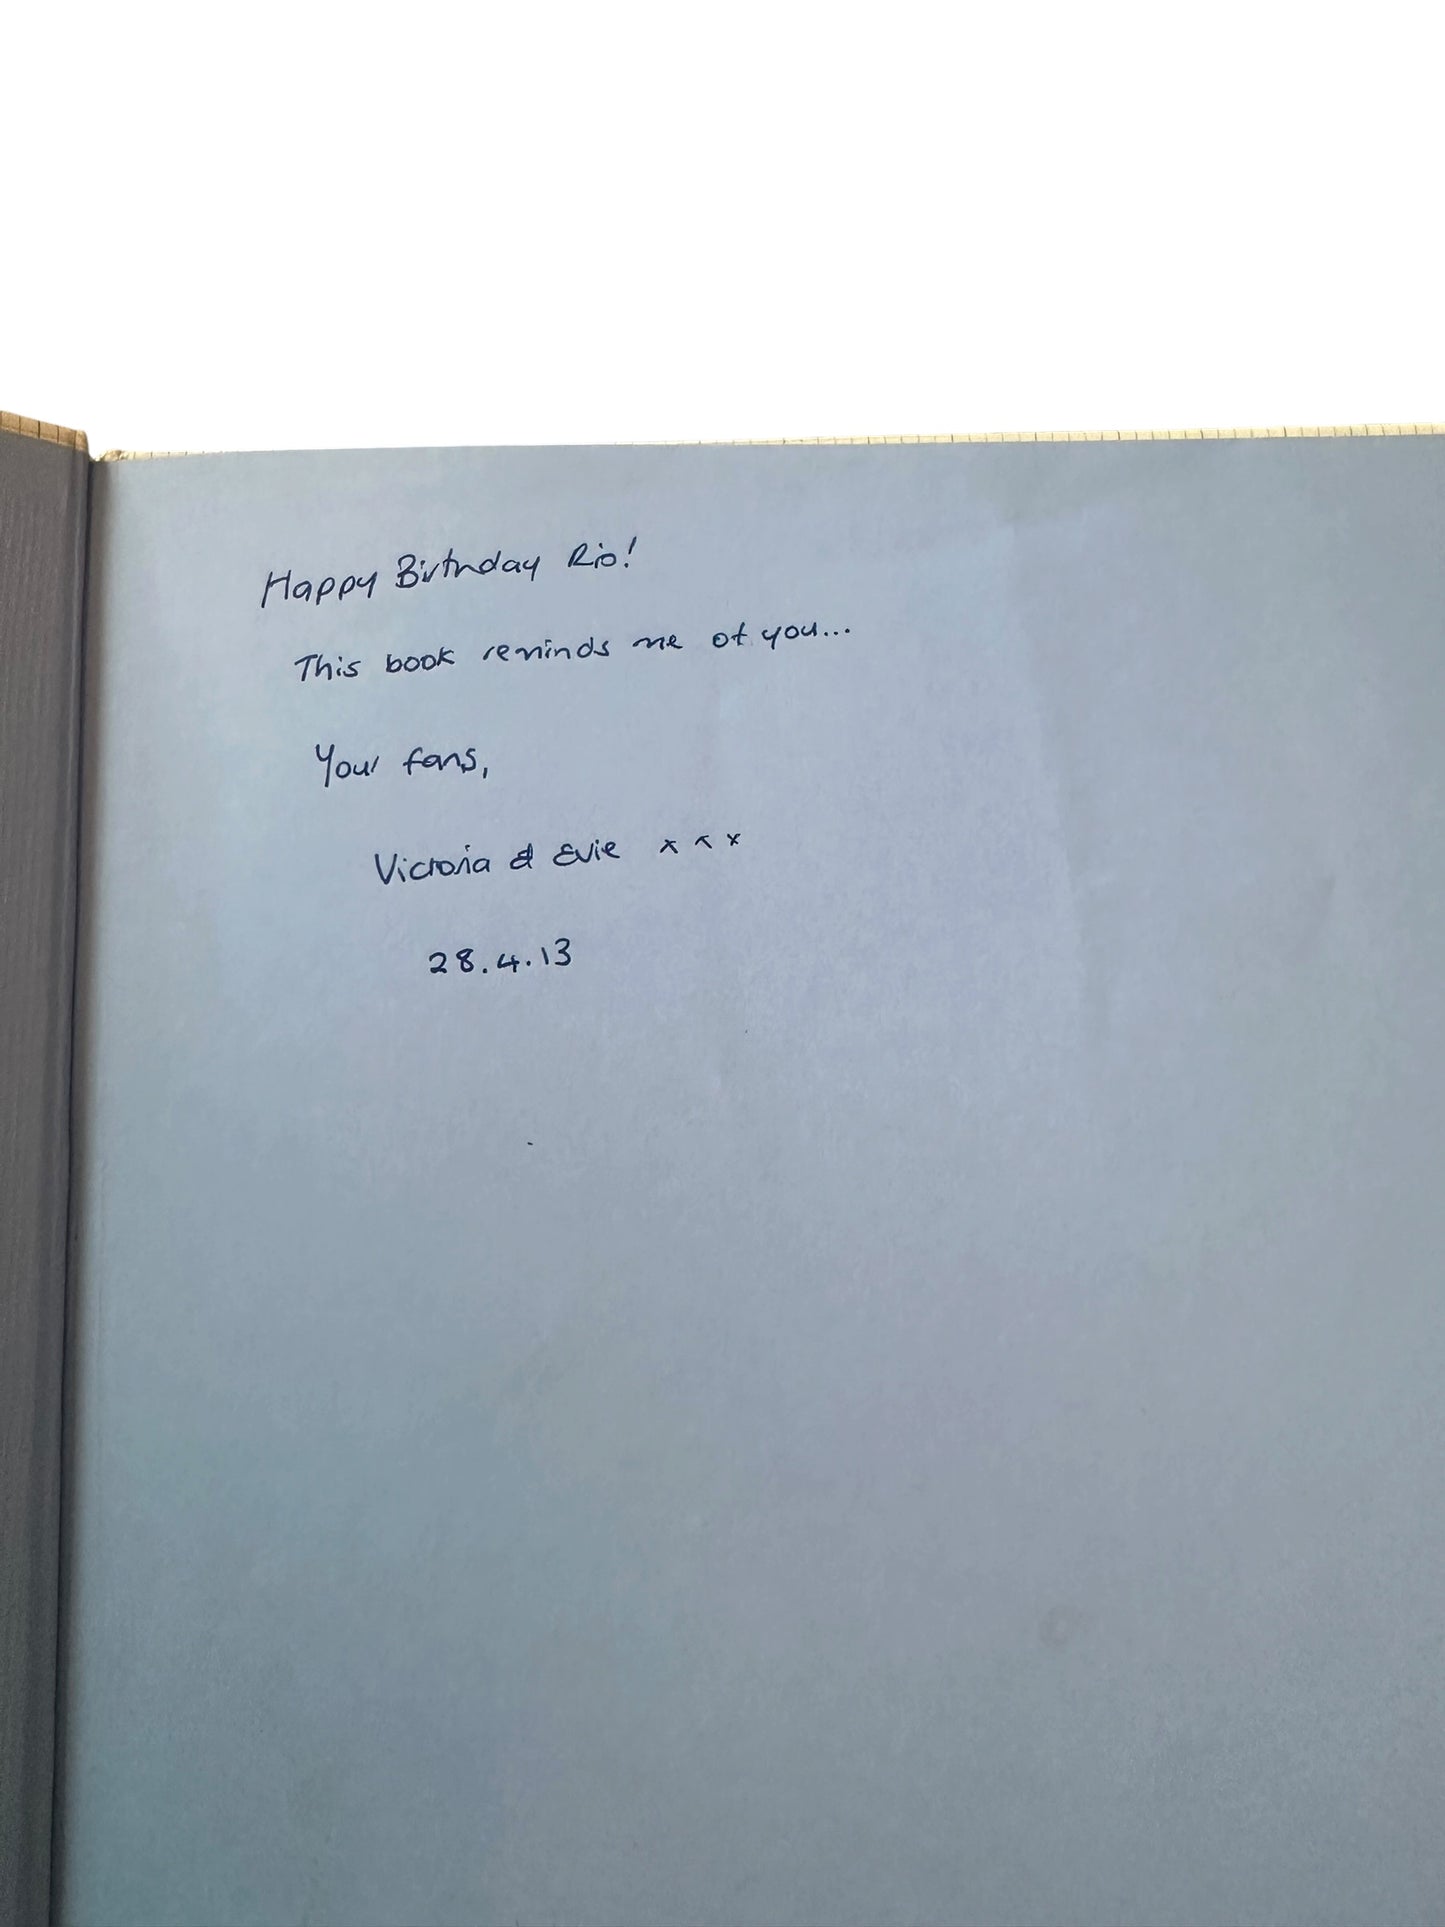 Happy Birthday Rio!
This book reminds me of you...
Your fans,
Victoria & Evie xxx
28.4.13